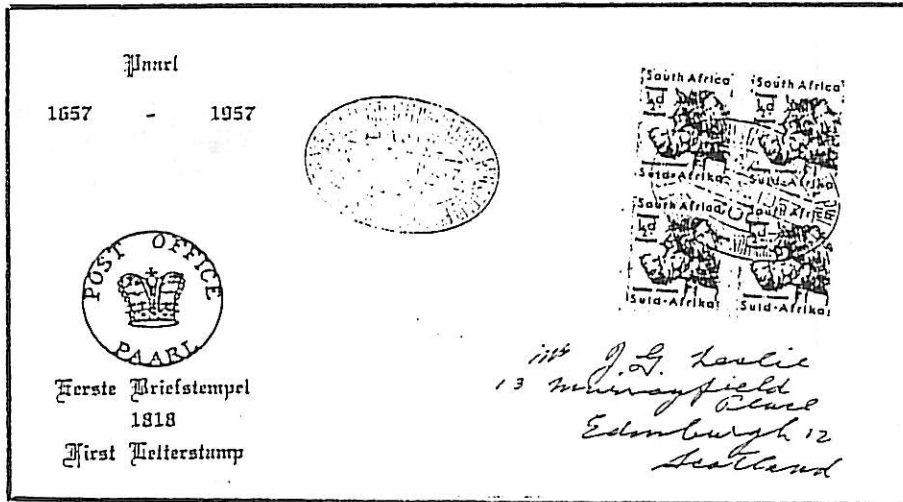 Paarl
1657 - 1957
POST OFFICE
PAARL
Eerste Briefstempel
1818
First Letterstamp
South Africa South Africa
½d ½d
Suid-Afrika Suid-Afrika
South Africa South Africa
½d ½d
Suid-Afrika Suid-Afrika
J.G. Leslie
13 Murrayfield
Place
Edinburgh 12
Scotland